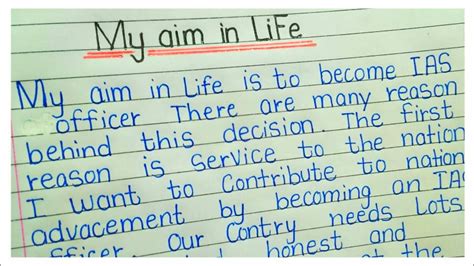 My aim in Life
My aim in Life is to become IAS
officer There are many reason
behind this decision. The first
reason is Service to the nation
I want to Contribute to nation
advacement by becoming an IAS
officer. Our Contry needs Lots
honest and